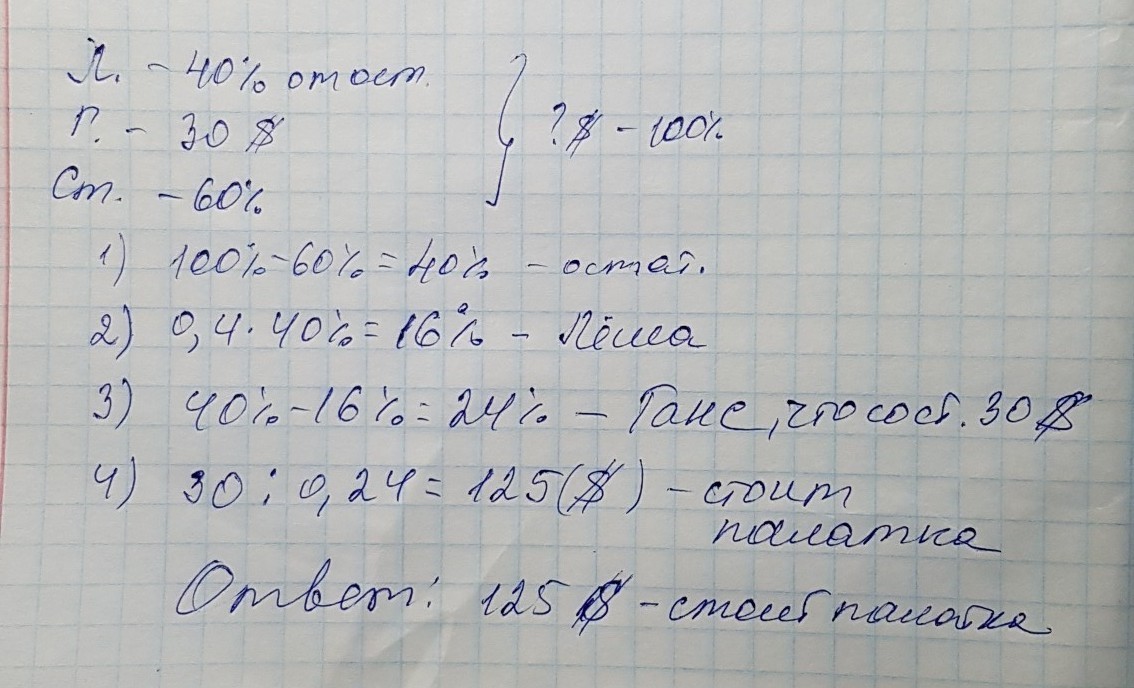 Л. - 40% от ост.
Г. - 30 $
Ст. - 60%
? $ - 100%
1) 100%-60%=40% - остат.
2) 0,4·40%=16% - Лёша
3) 40%-16%=24% - Ганс, что сост. 30 $
4) 30 : 0,24 = 125($) - стоит
палатка
Ответ: 125 $ - стоит палатка